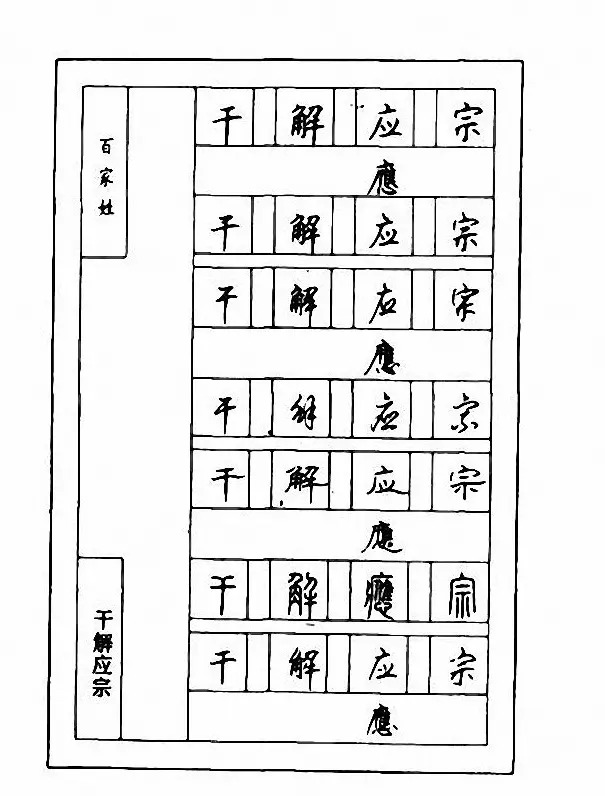 百家姓
干 解 应 宗
應
干 解 应 宗
干 解 应 宗
應
干 解 应 宗
干 解 应 宗
應
干 解 應 宗
干 解 应 宗
應
干解应宗